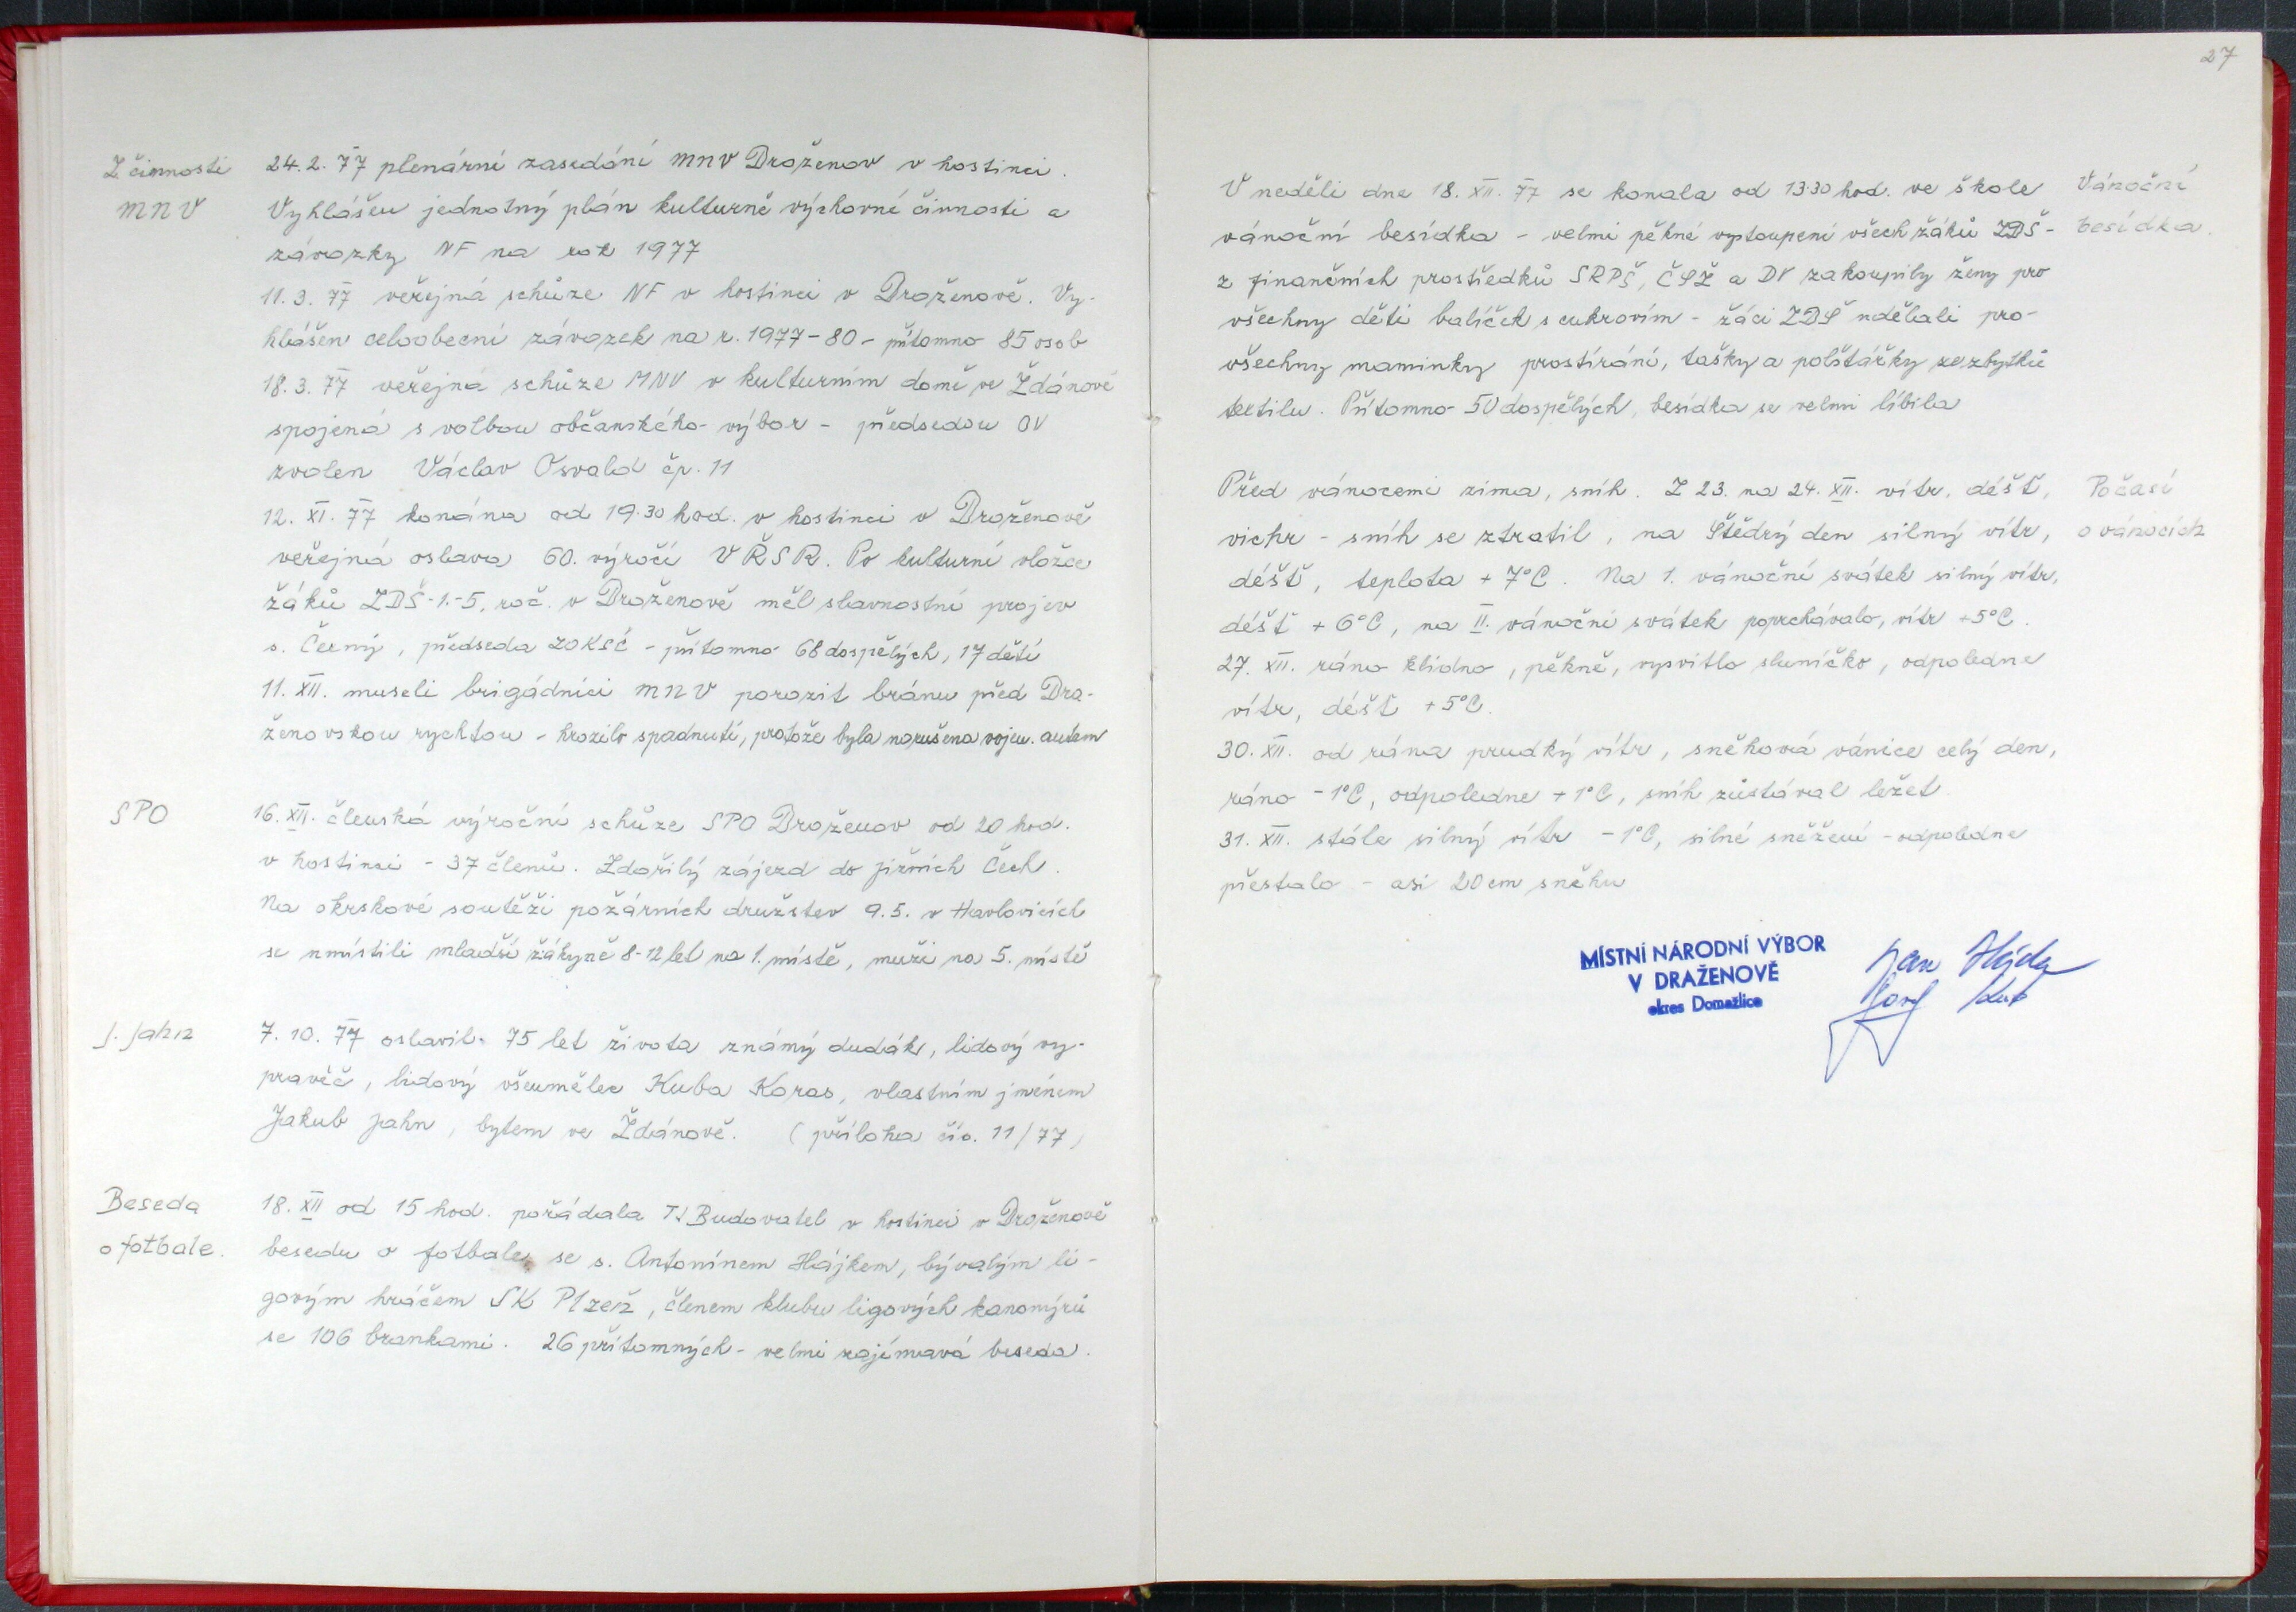 Z činnosti
MNV
24.2. 77 plenární zasedání MNV Draženov v hostinci.
Vyhlášen jednotný plán kulturně výchovné činnosti a
závazky NF na rok 1977
11.3. 77 veřejná schůze NF v hostinci v Draženově. Vy-
hlášen celoobecní závazek na r. 1977-80 - přítomno 85 osob
18.3. 77 veřejná schůze MNV v kulturním domě ve Ždánově
spojená s volbou občanského výbor - předsedou OV
zvolen Václav Osvald čp. 11
12. XI. 77 konána od 19.30 hod. v hostinci v Draženově
veřejná oslava 60. výročí VŘSR. Po kulturní vložce
žáků ZDŠ - 1.-5. roč. v Draženově měl slavnostní projev
s. Černý, předseda ZOKSČ - přítomno 68 dospělých, 17 dětí
11. XII. museli brigádníci MNV porazit bránu před Dra-
ženovskou rychtou - hrozilo spadnutí, protože byla narušena vojen. autem
SPO
16. XII. členská výroční schůze SPO Draženov od 20 hod.
v hostinci - 37 členů. Zdařilý zájezd do jižních Čech.
Na okrskové soutěži požárních družstev 9.5. v Havlovicích
se umístili mladší žákyně 8-12 let na 1. místě, muži na 5. místě
J. Jahn
7. 10. 77 oslavil 75 let života známý dudák, lidový vy-
pravěč, lidový všeumělec Kuba Karas, vlastním jménem
Jakub Jahn, bytem ve Ždánově. (příloha čís. 11/77)
Beseda
o fotbale.
18. XII od 15 hod. pořádala TJ Budovatel v hostinci v Draženově
besedu o fotbale se s. Antonínem Hájkem, bývalým li-
govým hráčem SK Plzeň, členem klubu ligových kanonýrů
se 106 brankami. 26 přítomných - velmi zajímavá beseda.
27
V neděli dne 18. XII. 77 se konala od 13.30 hod. ve škole
vánoční besídka - velmi pěkné vystoupení všech žáků ZDŠ -
z finančních prostředků SRPŠ, ČSŽ a DV zakoupily ženy pro
všechny děti balíček s cukrovím - žáci ZDŠ udělali pro
všechny maminky prostírání, tašky a polštářky ze zbytků
textilu. Přítomno 50 dospělých, besídka se velmi líbila
Vánoční
besídka.
Před vánocemi zima, sníh. Z 23. na 24. XII. vítr, déšť,
vichr - sníh se ztratil, na Štědrý den silný vítr,
déšť, teplota + 7°C. Na 1. vánoční svátek silný vítr,
déšť + 6°C, na II. vánoční svátek poprchávalo, vítr +5°C.
27. XII. ráno klidno, pěkně, vysvitlo sluníčko, odpoledne
vítr, déšť +5°C.
30. XII. od rána prudký vítr, sněhová vánice celý den,
ráno -1°C, odpoledne +1°C, sníh zůstával ležet
31. XII. stále silný vítr -1°C, silné sněžení - odpoledne
přestalo - asi 20 cm sněhu
Počasí
o vánocích
MÍSTNÍ NÁRODNÍ VÝBOR
V DRAŽENOVĚ
okres Domažlice
Jan